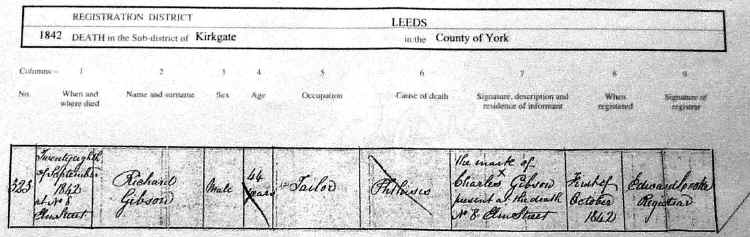 REGISTRATION DISTRICT LEEDS
1842 DEATH in the Sub-district of Kirkgate in the County of York
Columns:- 1 2 3 4 5 6 7 8 9
No. When and where died Name and surname Sex Age Occupation Cause of death Signature, description and residence of informant When registered Signature of registrar
323
Twentyeighth
of September
1842
at No 8
Elm Street
Richard
Gibson
Male
44
years
Tailor
Phthisis
The mark of
X
Charles Gibson
present at the death
No 8 Elm Street
First of
October
1842
Edward
Registrar